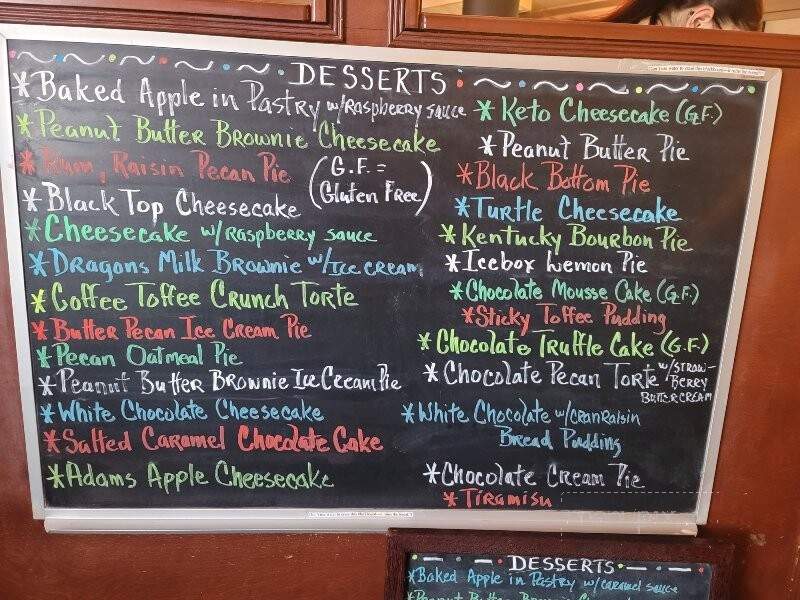 DESSERTS
*Baked Apple in Pastry w/raspberry sauce
*Peanut Butter Brownie Cheesecake
*Rum, Raisin Pecan Pie
(G.F. =
Gluten Free)
*Black Top Cheesecake
*Cheesecake w/raspberry sauce
*Dragons Milk Brownie w/Ice cream
*Coffee Toffee Crunch Torte
*Butter Pecan Ice Cream Pie
*Pecan Oatmeal Pie
*Peanut Butter Brownie Ice Cream Pie
*White Chocolate Cheesecake
*Salted Caramel Chocolate Cake
*Adams Apple Cheesecake
*Keto Cheesecake (G.F.)
*Peanut Butter Pie
*Black Bottom Pie
*Turtle Cheesecake
*Kentucky Bourbon Pie
*Icebox Lemon Pie
*Chocolate Mousse Cake (G.F.)
*Sticky Toffee Pudding
*Chocolate Truffle Cake (G.F.)
*Chocolate Pecan Torte w/STRAW-
BERRY
BUTTERCREAM
*White Chocolate w/CranRaisin
Bread Pudding
*Chocolate Cream Pie
*Tiramisu
DESSERTS
*Baked Apple in Pastry w/caramel sauce
*Peanut Butter Brownie